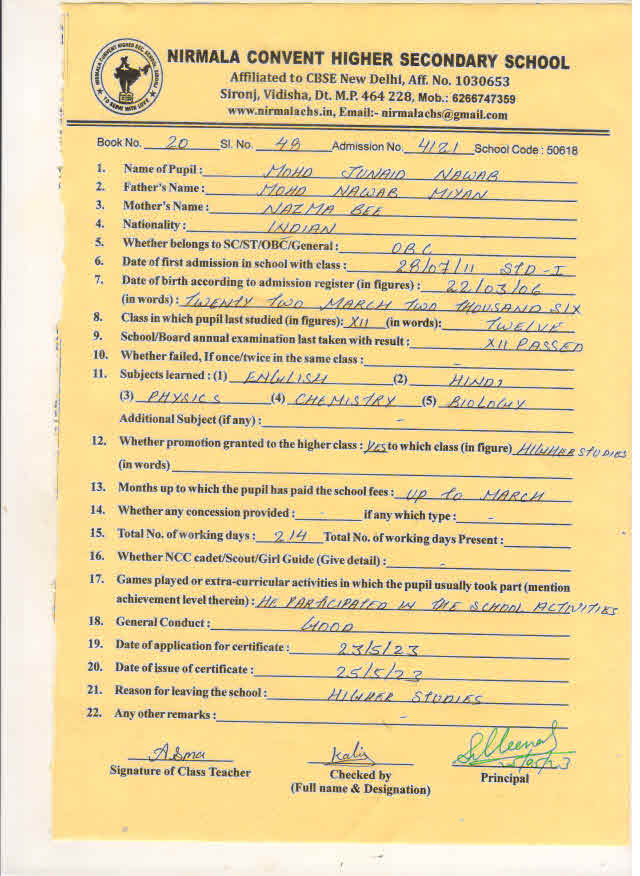 NIRMALA CONVENT HIGHER SECONDARY SCHOOL
Affiliated to CBSE New Delhi, Aff. No. 1030653
Sironj, Vidisha, Dt. M.P. 464 228, Mob.: 6266747359
www.nirmalachs.in, Email:- nirmalachs@gmail.com
NIRMALA CONVENT HIGHER SEC. SCHOOL SIRONJ
TO SERVE WITH LOVE
Book No. 20 Sl. No. 49 Admission No. 4121 School Code : 50618
1. Name of Pupil : MOHD JUNAID NAWAB
2. Father's Name : MOHD NAWAB MIYAN
3. Mother's Name : NAZMA BEE
4. Nationality : INDIAN
5. Whether belongs to SC/ST/OBC/General : OBC
6. Date of first admission in school with class : 28/07/11 STD-I
7. Date of birth according to admission register (in figures) : 22/03/06
(in words) : TWENTY TWO MARCH TWO THOUSAND SIX
8. Class in which pupil last studied (in figures): XII (in words): TWELVE
9. School/Board annual examination last taken with result : XII PASSED
10. Whether failed, If once/twice in the same class : -
11. Subjects learned : (1) ENGLISH (2) HINDI
(3) PHYSICS (4) CHEMISTRY (5) BIOLOGY
Additional Subject (if any) : -
12. Whether promotion granted to the higher class : YES to which class (in figure) HIGHER STUDIES
(in words)
13. Months up to which the pupil has paid the school fees : UP TO MARCH
14. Whether any concession provided : - if any which type : -
15. Total No. of working days : 214 Total No. of working days Present :
16. Whether NCC cadet/Scout/Girl Guide (Give detail) : -
17. Games played or extra-curricular activities in which the pupil usually took part (mention
achievement level therein) : HE PARTICIPATED IN THE SCHOOL ACTIVITIES
18. General Conduct : GOOD
19. Date of application for certificate : 23/5/23
20. Date of issue of certificate : 25/5/23
21. Reason for leaving the school : HIGHER STUDIES
22. Any other remarks : -
Asma
Signature of Class Teacher
Checked by
(Full name & Designation)
25/05/23
Principal